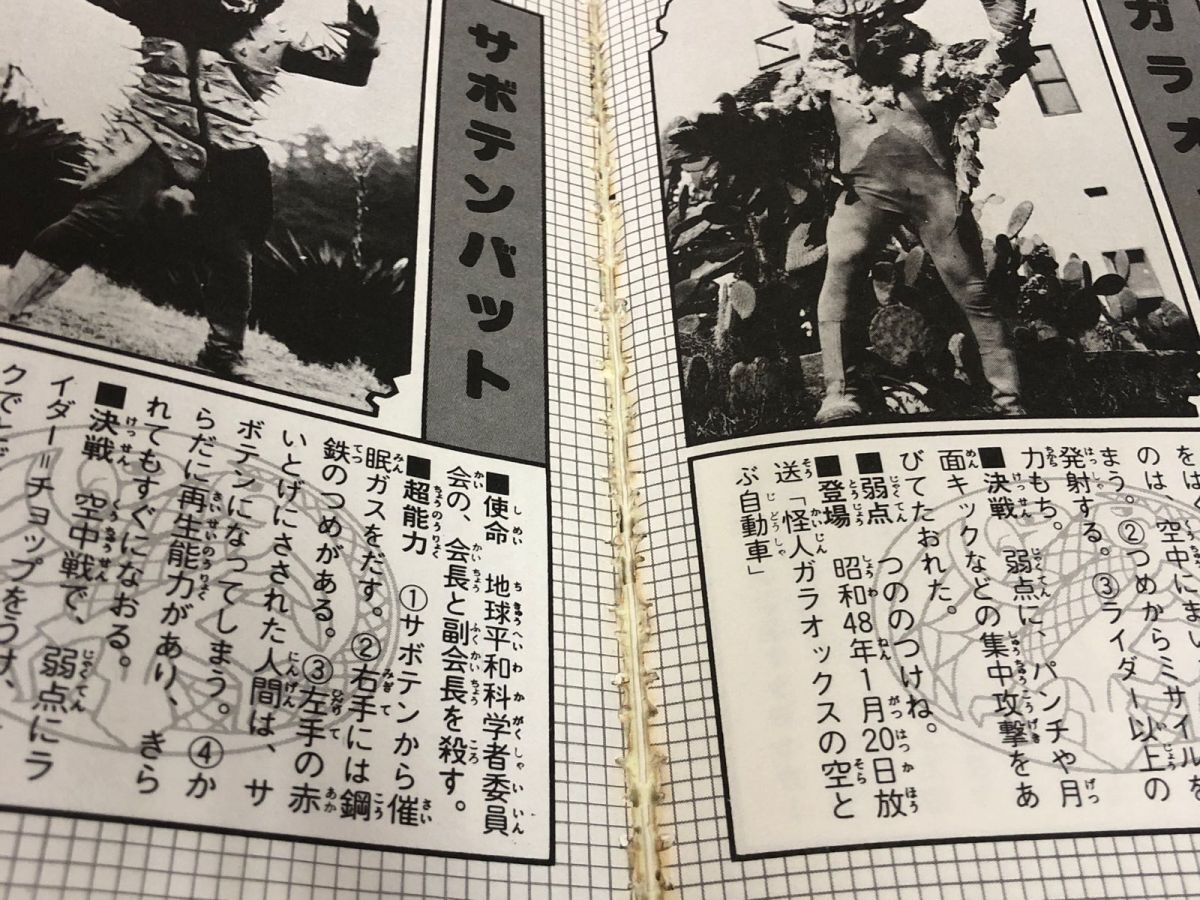 ガラオ
をは
のは、空中にまい
まう。②つめからミサイルを
発射する。③ライダー以上の
力もち。
■決戦 弱点に、パンチや月
面キックなどの集中攻撃をあ
びてたおれた。
■弱点 つののつけね。
■登場 昭和48年1月20日放
送「怪人ガラオックスの空と
ぶ自動車」
サボテンバット
■使命 地球平和科学者委員
会の、会長と副会長を殺す。
■超能力 ①サボテンから催
眠ガスをだす。②右手には鋼
鉄のつめがある。③左手の赤
いとげにさされた人間は、サ
ボテンになってしまう。④か
らだに再生能力があり、きら
れてもすぐになおる。
■決戦 空中戦で、弱点にラ
イダー＝チョップをうけ、
クで